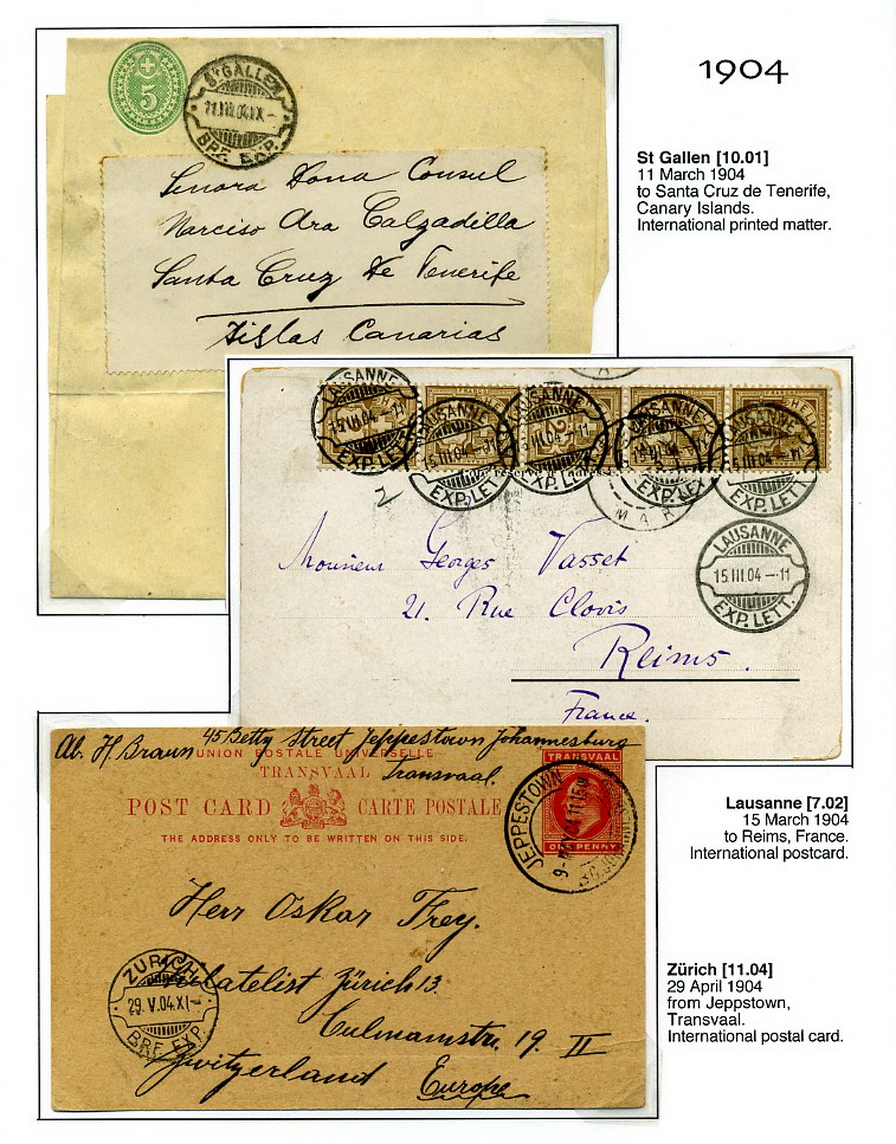 1904
5
St GALLEN
11.III.04.IX-
BRF. EXP.
Senora Dona Consul
Narciso Ara Calzadilla
Santa Cruz de Tenerife
Islas Canarias
St Gallen [10.01]
11 March 1904
to Santa Cruz de Tenerife,
Canary Islands.
International printed matter.
LAUSANNE
15.III.04-11
EXP. LETT.
LAUSANNE
15.III.04-11
EXP. LETT.
LAUSANNE
III.04-11
EXP. LETT.
LAUSANNE
III.04
EXP. LETT.
LAUSANNE
15.III.04-11
EXP. LETT.
MAR
2
LAUSANNE
15.III.04-11
EXP. LETT.
Monsieur Georges Vasset
21. Rue Clovis
Reims.
France.
Ab. H. Braun 45 Betty Street Jeppestown Johannesburg
Transvaal.
UNION POSTALE UNIVERSELLE
TRANSVAAL
POST CARD CARTE POSTALE
THE ADDRESS ONLY TO BE WRITTEN ON THIS SIDE.
TRANSVAAL
ONE PENNY
JEPPESTOWN
9-MAY 04
Herr Oskar Frey.
Philatelist Zürich 13.
Culmannstr. 19. II
Switzerland Europe
ZÜRICH
29.V.04.XI-
BRF. EXP.
Lausanne [7.02]
15 March 1904
to Reims, France.
International postcard.
Zürich [11.04]
29 April 1904
from Jeppstown,
Transvaal.
International postal card.